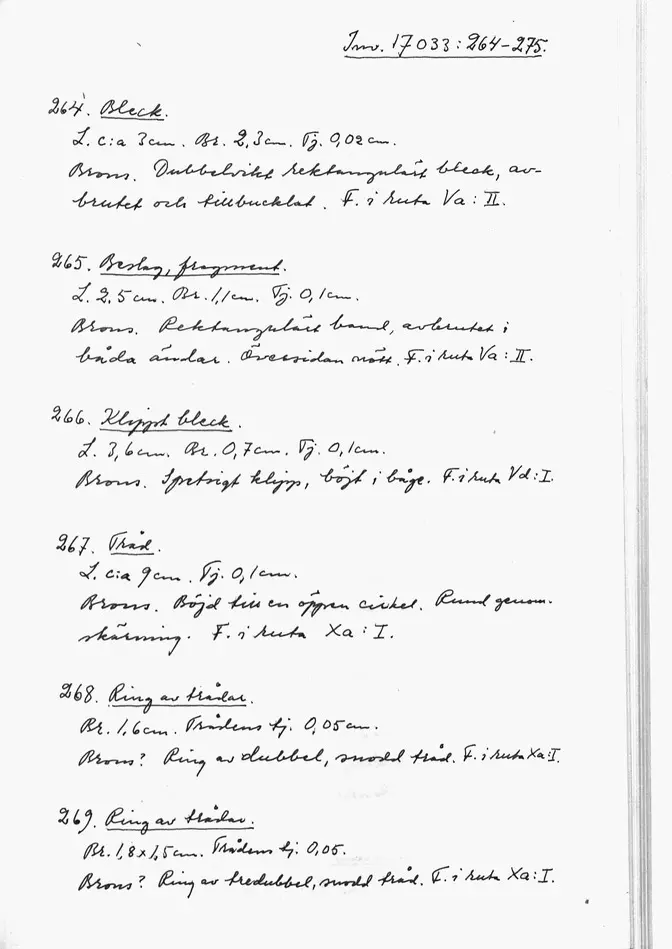 Inv. 17033:264-275.
264. Bleck.
L. c:a 3cm. Br. 2,3cm. Tj. 0,02cm.
Brons. Dubbelvikt rektangulärt bleck, av-
brutet och tillbucklat. F. i ruta Va: II.
265. Beslag, fragment.
L. 2,5cm. Br. 1,1cm. Tj. 0,1cm.
Brons. Rektangulärt band, avbrutet i
båda ändar. Översidan nött. F. i ruta Va: II.
266. Klippt bleck.
L. 3,6cm. Br. 0,7cm. Tj. 0,1cm.
Brons. Spetsigt klipp, böjt i båge. F. i ruta Vd: I.
267. Tråd.
L. c:a 9cm. Tj. 0,1cm.
Brons. Böjd till en öppen cirkel. Rund genom-
skärning. F. i ruta Xa: I.
268. Ring av trådar.
Br. 1,6cm. Trådens tj. 0,05cm.
Brons? Ring av dubbel, snodd tråd. F. i ruta Xa: I.
269. Ring av trådar.
Br. 1,8x1,5cm. Trådens tj. 0,05.
Brons? Ring av tredubbel, snodd tråd. F. i ruta Xa: I.